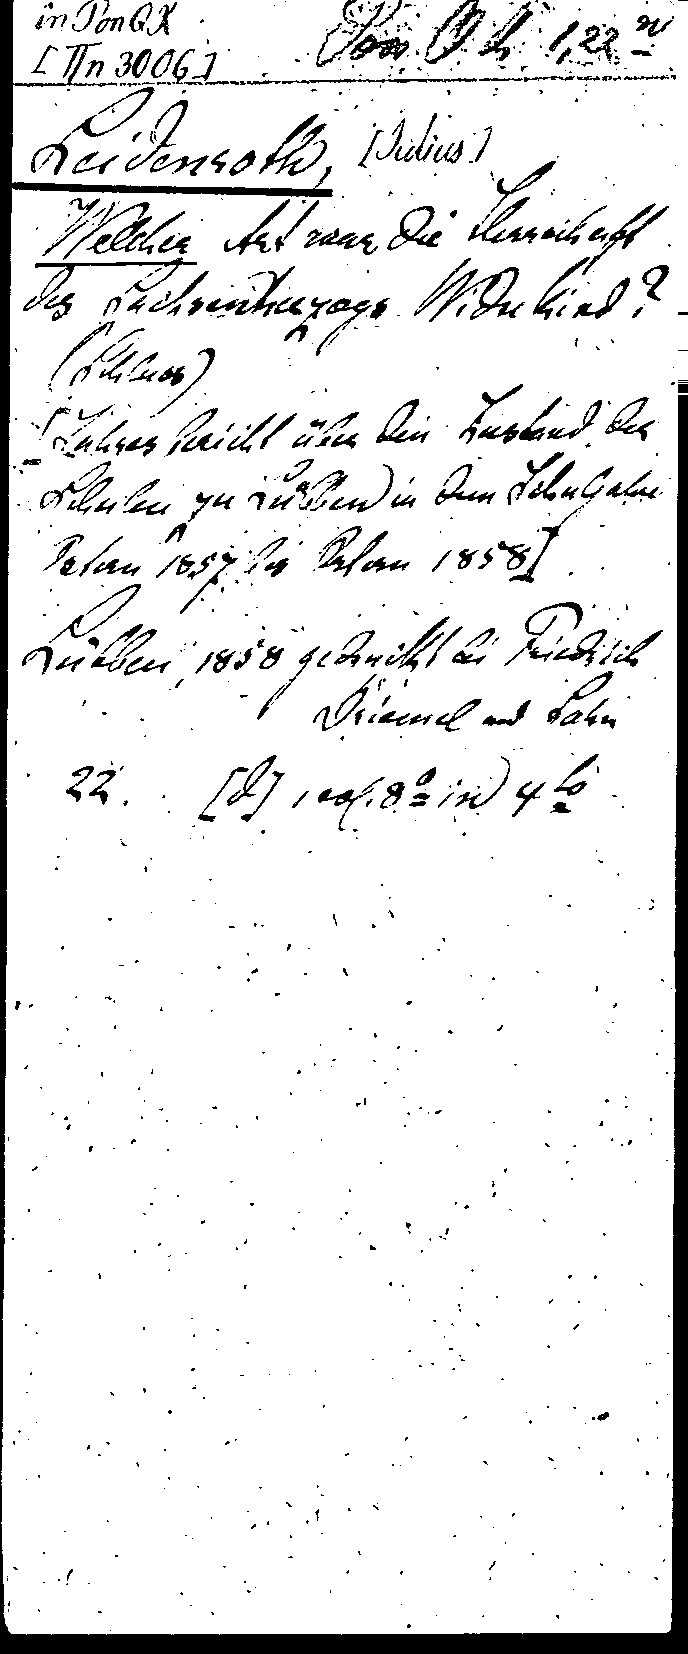 in Pon QK
[IIn 3006] Pon 1,22
Leidenroth, [Julius]
Welcher Art war die Herrschaft
des Sachsenherzogs Widukind?
(Schluss)
[Jahresbericht über den Zustand der
Schulen zu Lübben in dem Schuljahre
Ostern 1857 bis Ostern 1858]
Lübben, 1858 gedruckt bei Friedrich
Driemel und Sohn
22. [d] 8° in 4to